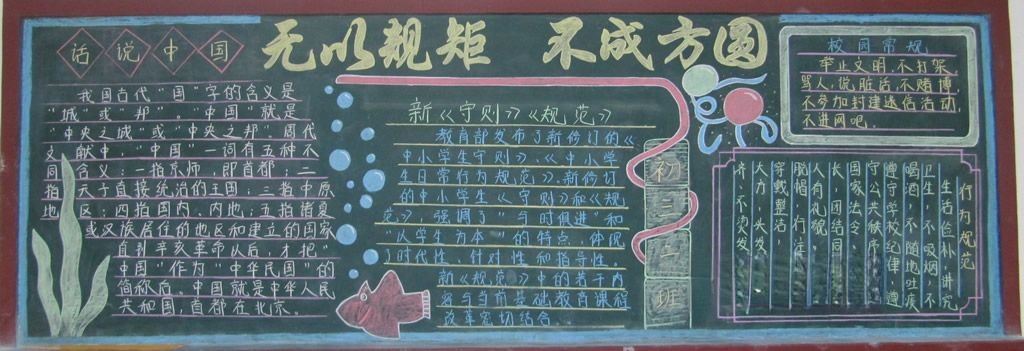 无以规矩 不成方圆
话说中国
我国古代“国”字的含义是
“城”或“邦”。“中国”就是
“中央之城”或“中央之邦”。周代
文献中，“中国”一词有五种不
同含义：一指京师，即首都；二
指天子直接统治的王国；三指中原
地区；四指国内、内地；五指诸夏
或汉族居住的地区和建立的国家
自到辛亥革命以后，才把“
中国”作为“中华民国”的
简称。中国就是中华人民
共和国，首都在北京。
新《守则》《规范》
教育部发布了新修订的《
中小学生守则》、《中小学
生日常行为规范》。新修订
的中小学生《守则》和《规
范》，强调了“与时俱进”和
“以学生为本”的特点，体现
了时代性、针对性和指导性。
新《规范》中的若干内
容与当前基础教育课程
改革密切结合。
初
三
二
班
校园常规
举止文明，不打架
骂人，说脏话，不赌博
不参加封建迷信活动
不进网吧。
行为规范
生活俭朴，讲究
卫生，不吸烟，不
喝酒，不随地吐痰
遵守学校纪律，遵
守公共秩序
国家法令，
长，团结同
人有礼貌，
脱帽，行注
穿戴整洁，
大方，头发
齐，不烫发